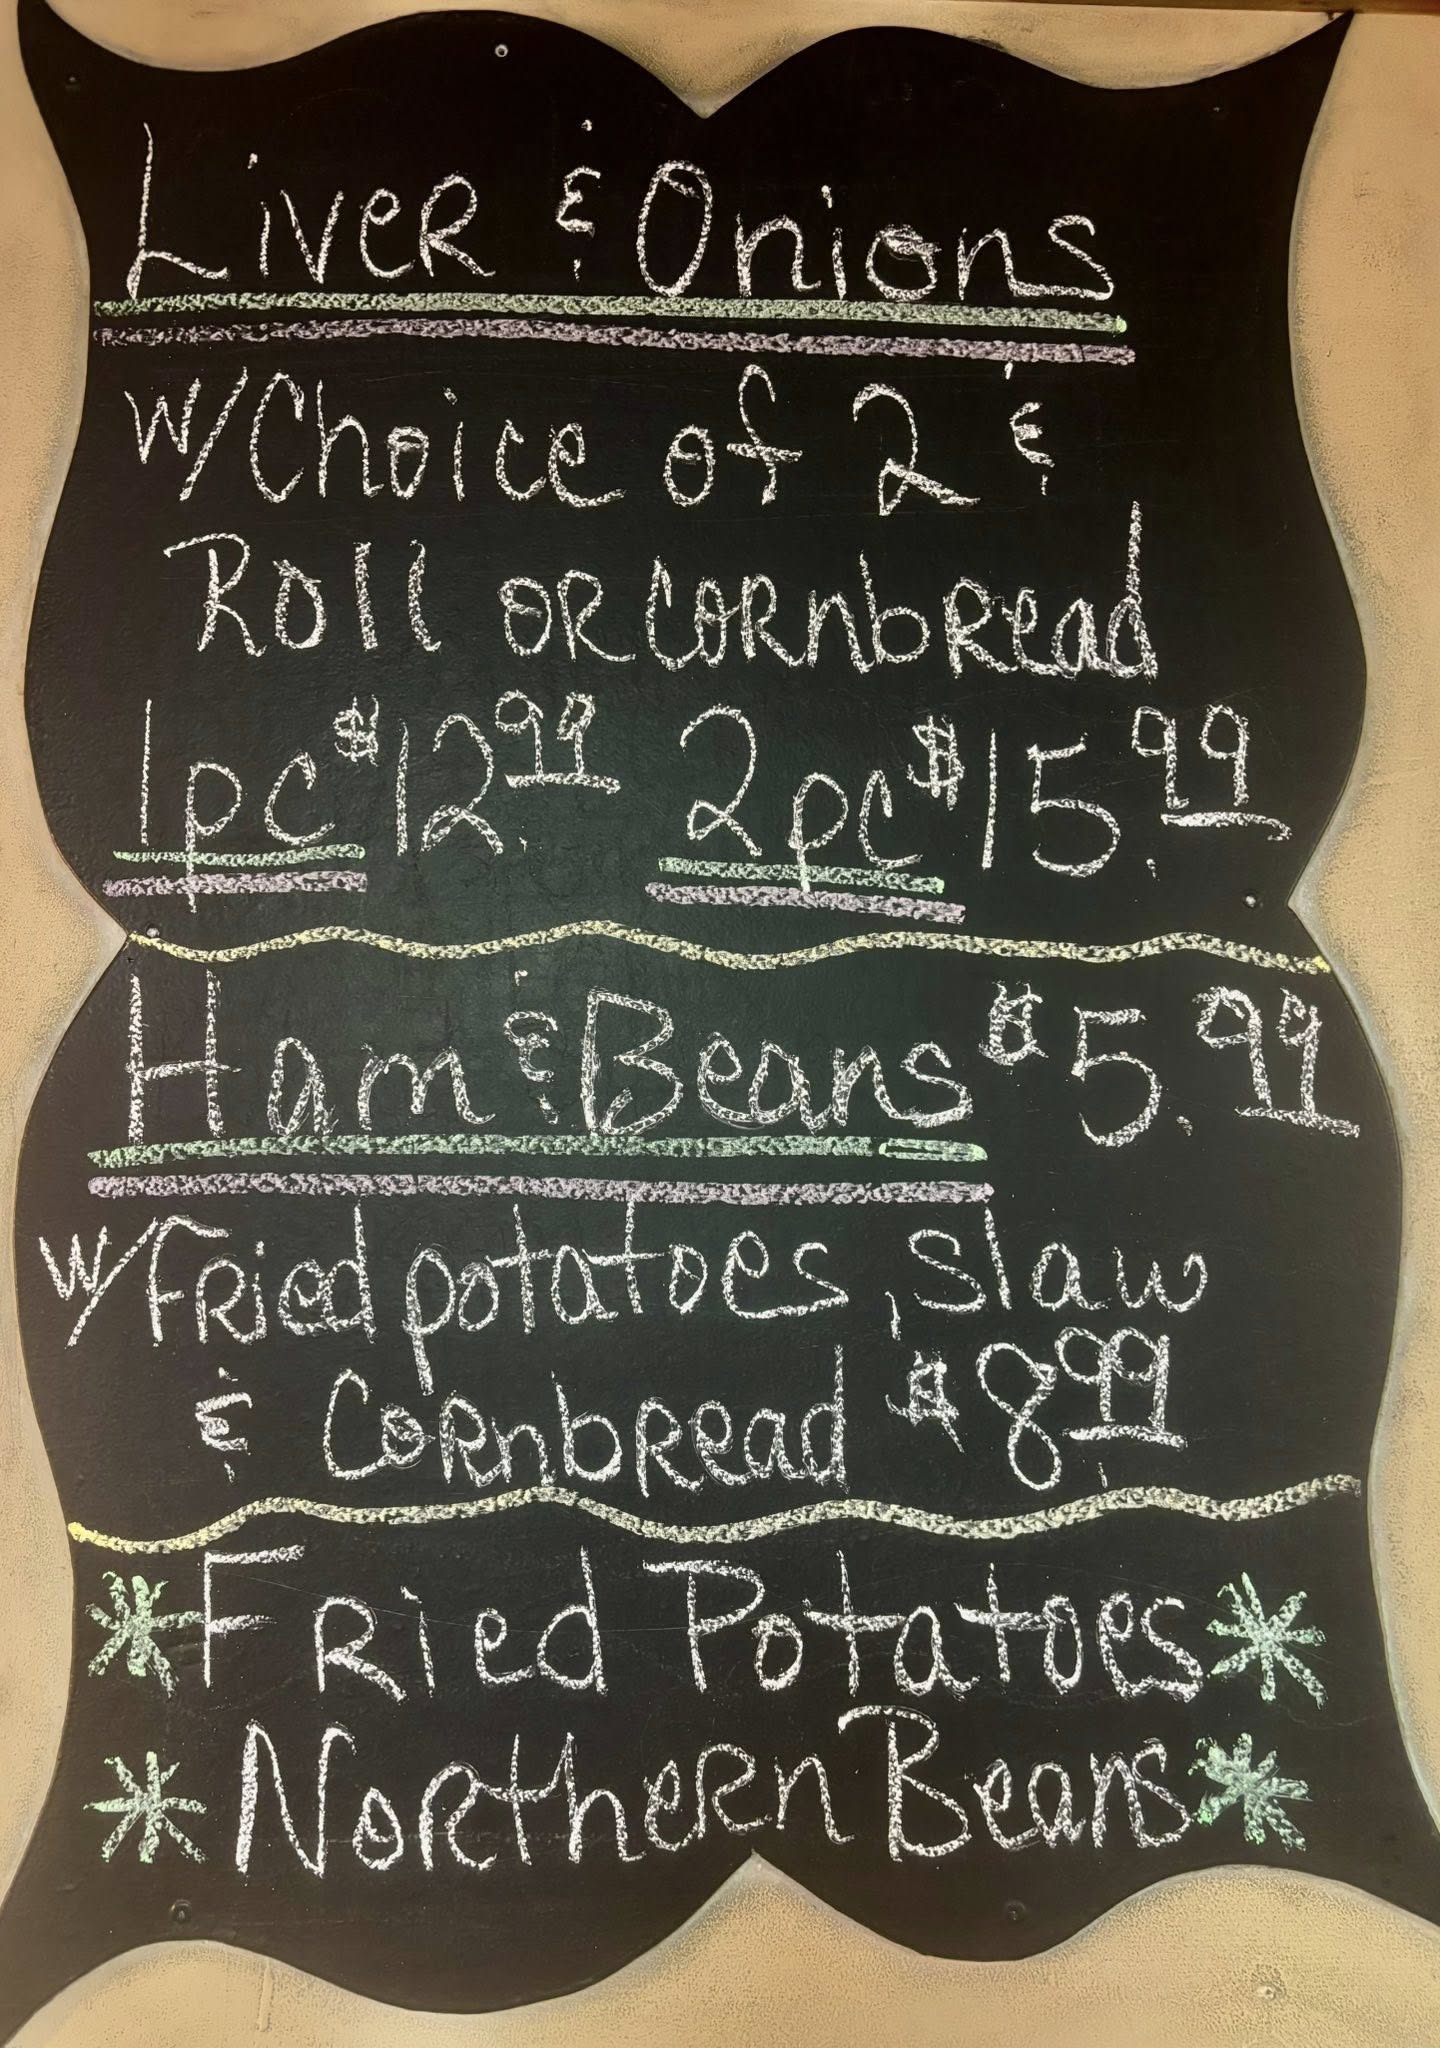 Liver & Onions
w/Choice of 2 &
Roll or cornbread
1pc $12.99 2pc $15.99
Ham & Beans $5.99
w/Fried potatoes, slaw
& Cornbread $8.99
* Fried Potatoes *
* Northern Beans *